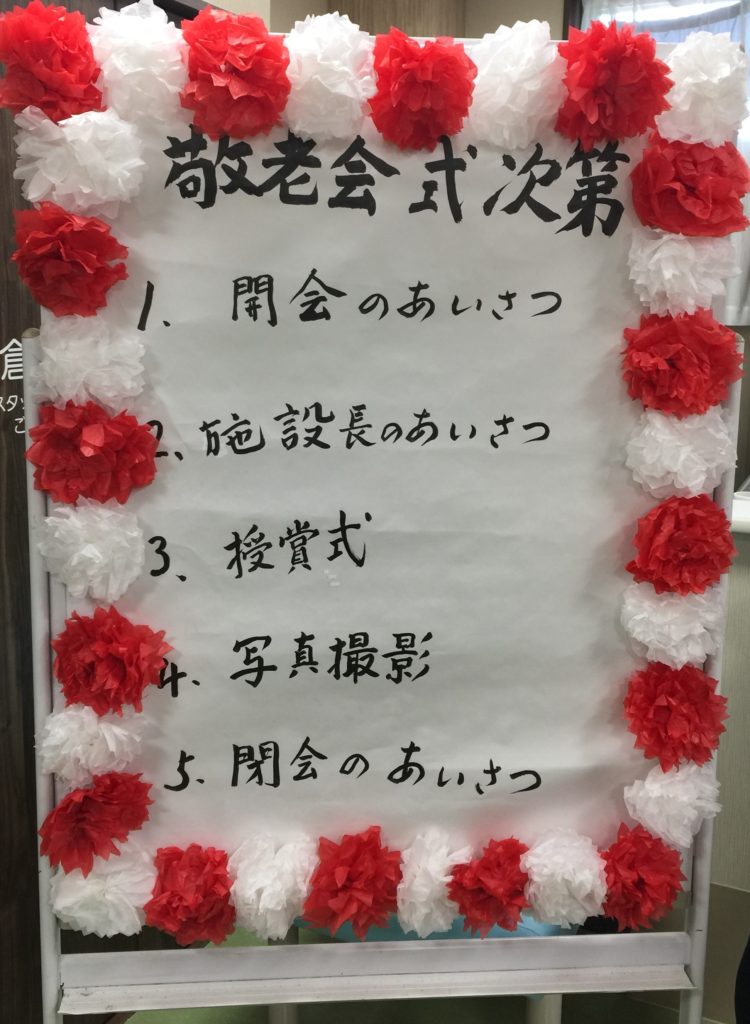 敬老会 式次第
1. 開会のあいさつ
2. 施設長のあいさつ
3、授賞式
4. 写真撮影
5. 閉会のあいさつ
倉
スタッ